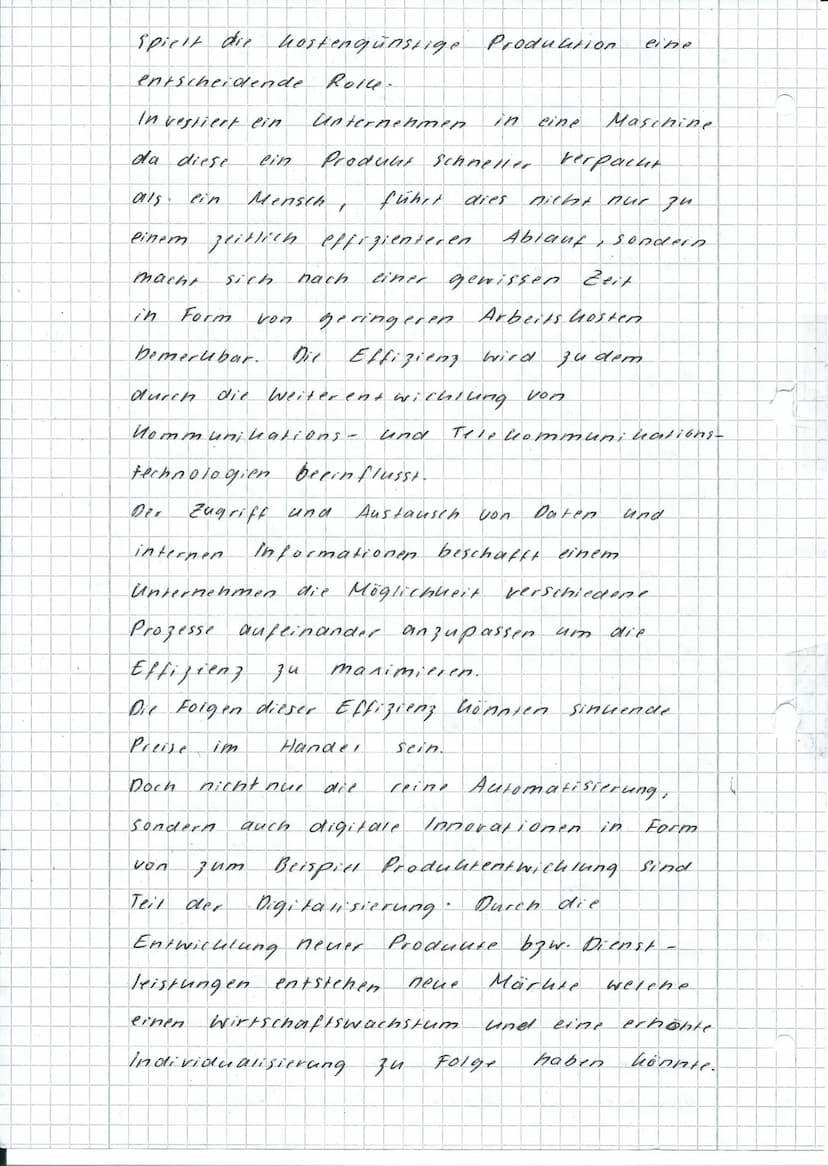 spielt die kostengünstige Produktion eine
entscheidende Rolle.
Investiert ein Unternehmen in eine Maschine
da diese ein Produkt schneller verpackt
als ein Mensch, führt dies nicht nur zu
einem zeitlich effizienteren Ablauf, sondern
macht sich nach einer gewissen Zeit
in Form von geringeren Arbeitskosten
bemerkbar. Die Effizienz wird zudem
durch die Weiterentwicklung von
Kommunikations- und Telekommunikations-
technologien beeinflusst.
Der Zugriff und Austausch von Daten und
internen Informationen beschafft einem
Unternehmen die Möglichkeit verschiedene
Prozesse aufeinander anzupassen um die
Effizienz zu maximieren.
Die Folgen dieser Effizienz könnten sinkende
Preise im Handel sein.
Doch nicht nur die reine Automatisierung,
sondern auch digitale Innovationen in Form
von zum Beispiel Produktentwicklung sind
Teil der Digitalisierung. Durch die
Entwicklung neuer Produkte bzw. Dienst-
leistungen entstehen neue Märkte welche
einen Wirtschaftswachstum und eine erhöhte
Individualisierung zu Folge haben könnte.